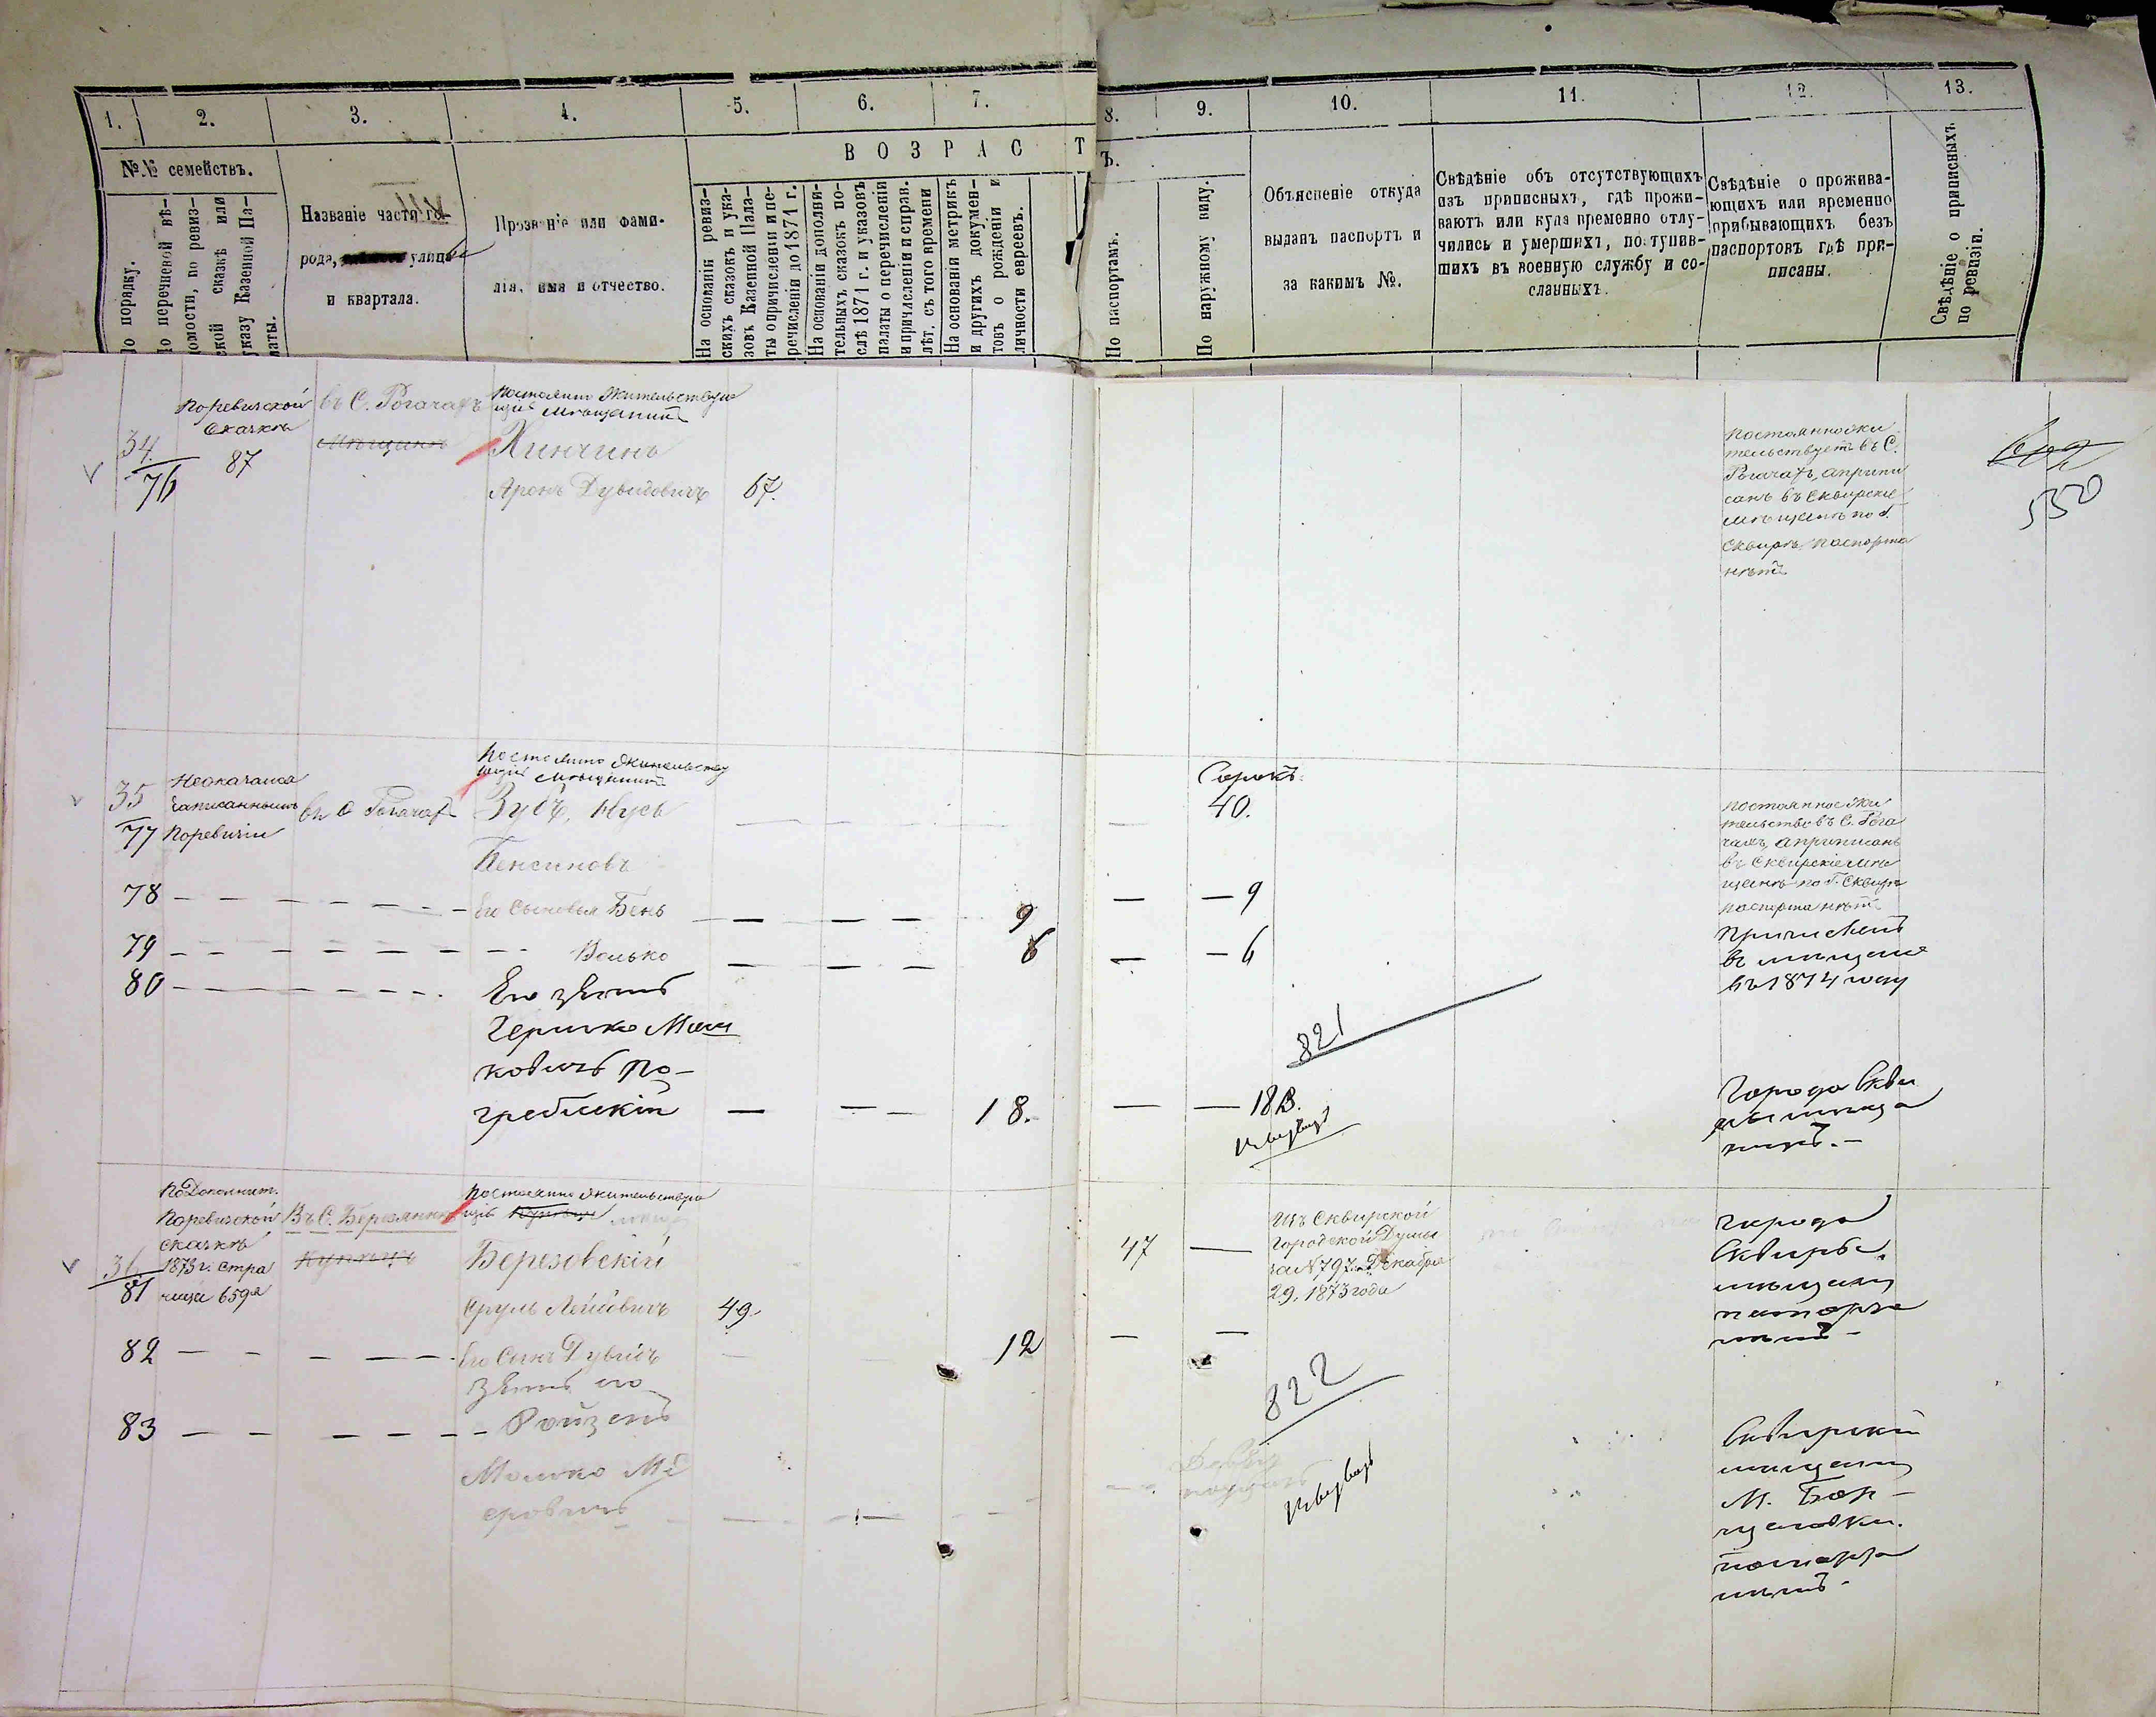 1. 2. 3. 4. 5. 6. 7. 8. 9. 10. 11. 12. 13.
№№ семействъ.
По порядку.
По перечневой вѣ-
домости, по ревиз-
ской сказкѣ или
указу Казенной Па-
латы.
Названіе части го-
рода, улицы
и квартала.
Прозваніе или фами-
лія, имя и отчество.
ВОЗРАСТЪ.
На основаніи ревиз-
скихъ сказокъ и ука-
зовъ Казенной Пала-
ты о причисленіи и пе-
речисленіи до 1871 г.
На основаніи дополни-
тельныхъ сказокъ по-
слѣ 1871 г. и указовъ
палаты о перечисленіи
и причисленіи и справ.
лѣт, съ того времени
На основаніи метрикъ
и другихъ докумен-
товъ о рожденіи и
личности евреевъ.
По паспортамъ.
По наружному виду.
Объясненіе откуда
выданъ паспортъ и
за какимъ №.
Свѣдѣніе объ отсутствующихъ
изъ приписныхъ, гдѣ прожи-
ваютъ или куда временно отлу-
чились и умершихъ, поступив-
шихъ въ военную службу и со-
сланныхъ.
Свѣдѣніе о прожива-
ющихъ или временно
прибывающихъ безъ
паспортовъ гдѣ при-
писаны.
Свѣдѣніе о приписныхъ
по ревизіи.
Поревизской
Сказкѣ
34
76
87
въ С. Рогачахъ
Мѣщанинъ
Постоянно Жительствую
щій Мѣщанинъ
Хинчинъ
Аронъ Дувидовичъ 67.
Постоянно жи
тельствуетъ въ С.
Рогачахъ, а припи
санъ въ Сквирскіе
мѣщане по г.
Сквирѣ, паспорта
нѣтъ
550
35
77
Неоказался
Записаннымъ
Поревизіи
въ С Рогачахъ
Постоянно Жительству
ющій Мѣщанинъ
Зубъ, Нусь
Бенсіновъ
Сорокъ
40.
постоянное жи
тельство въ С. Рога
чахъ, а приписанъ
въ Сквирскіе мѣ
щане по Г. Сквирѣ
паспорта нѣтъ
78 — — — Его Сыновья Бень — — — 9 — — 9
79 — — — Волько — — — 6 — — 6
Причисленъ
въ мѣщане
въ 1874 году
80 — — — Его зять
Гершко Мош
ковичъ По-
гребискій — — — 18. — — 18
821
Города Скви
ры мѣща
нинъ.—
По Дополнит.
Поревизской
сказкѣ
1873 г. стра
ница 659я
36
81
Въ С. Березянкѣ
Купецъ
Постоянно Жительствую
щій Купецъ
Березовскій
Сруль Лейбовичъ 49.
47 —
Изъ Сквирской
Городской Думы
за N 797. Декабря
29. 1873 года
города
Сквиры.
мѣщанинъ
паспорта
нѣтъ —
82 — — — Его Сынъ Дувидъ — 12 — —
822
83 — — — зять его
Ройзенъ
Мошко Ме
еровичъ
Сквирскій
мѣщанинъ
М. Бор-
щаговки.
паспорта
нѣтъ.